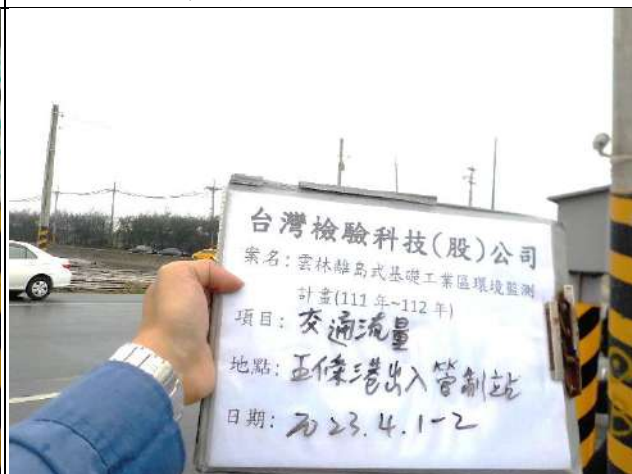 台灣檢驗科技(股)公司
案名：雲林離島式基礎工業區環境監測
計畫(111年~112年)
項目：交通流量
地點：五條港出入管制站
日期：2023.4.1-2